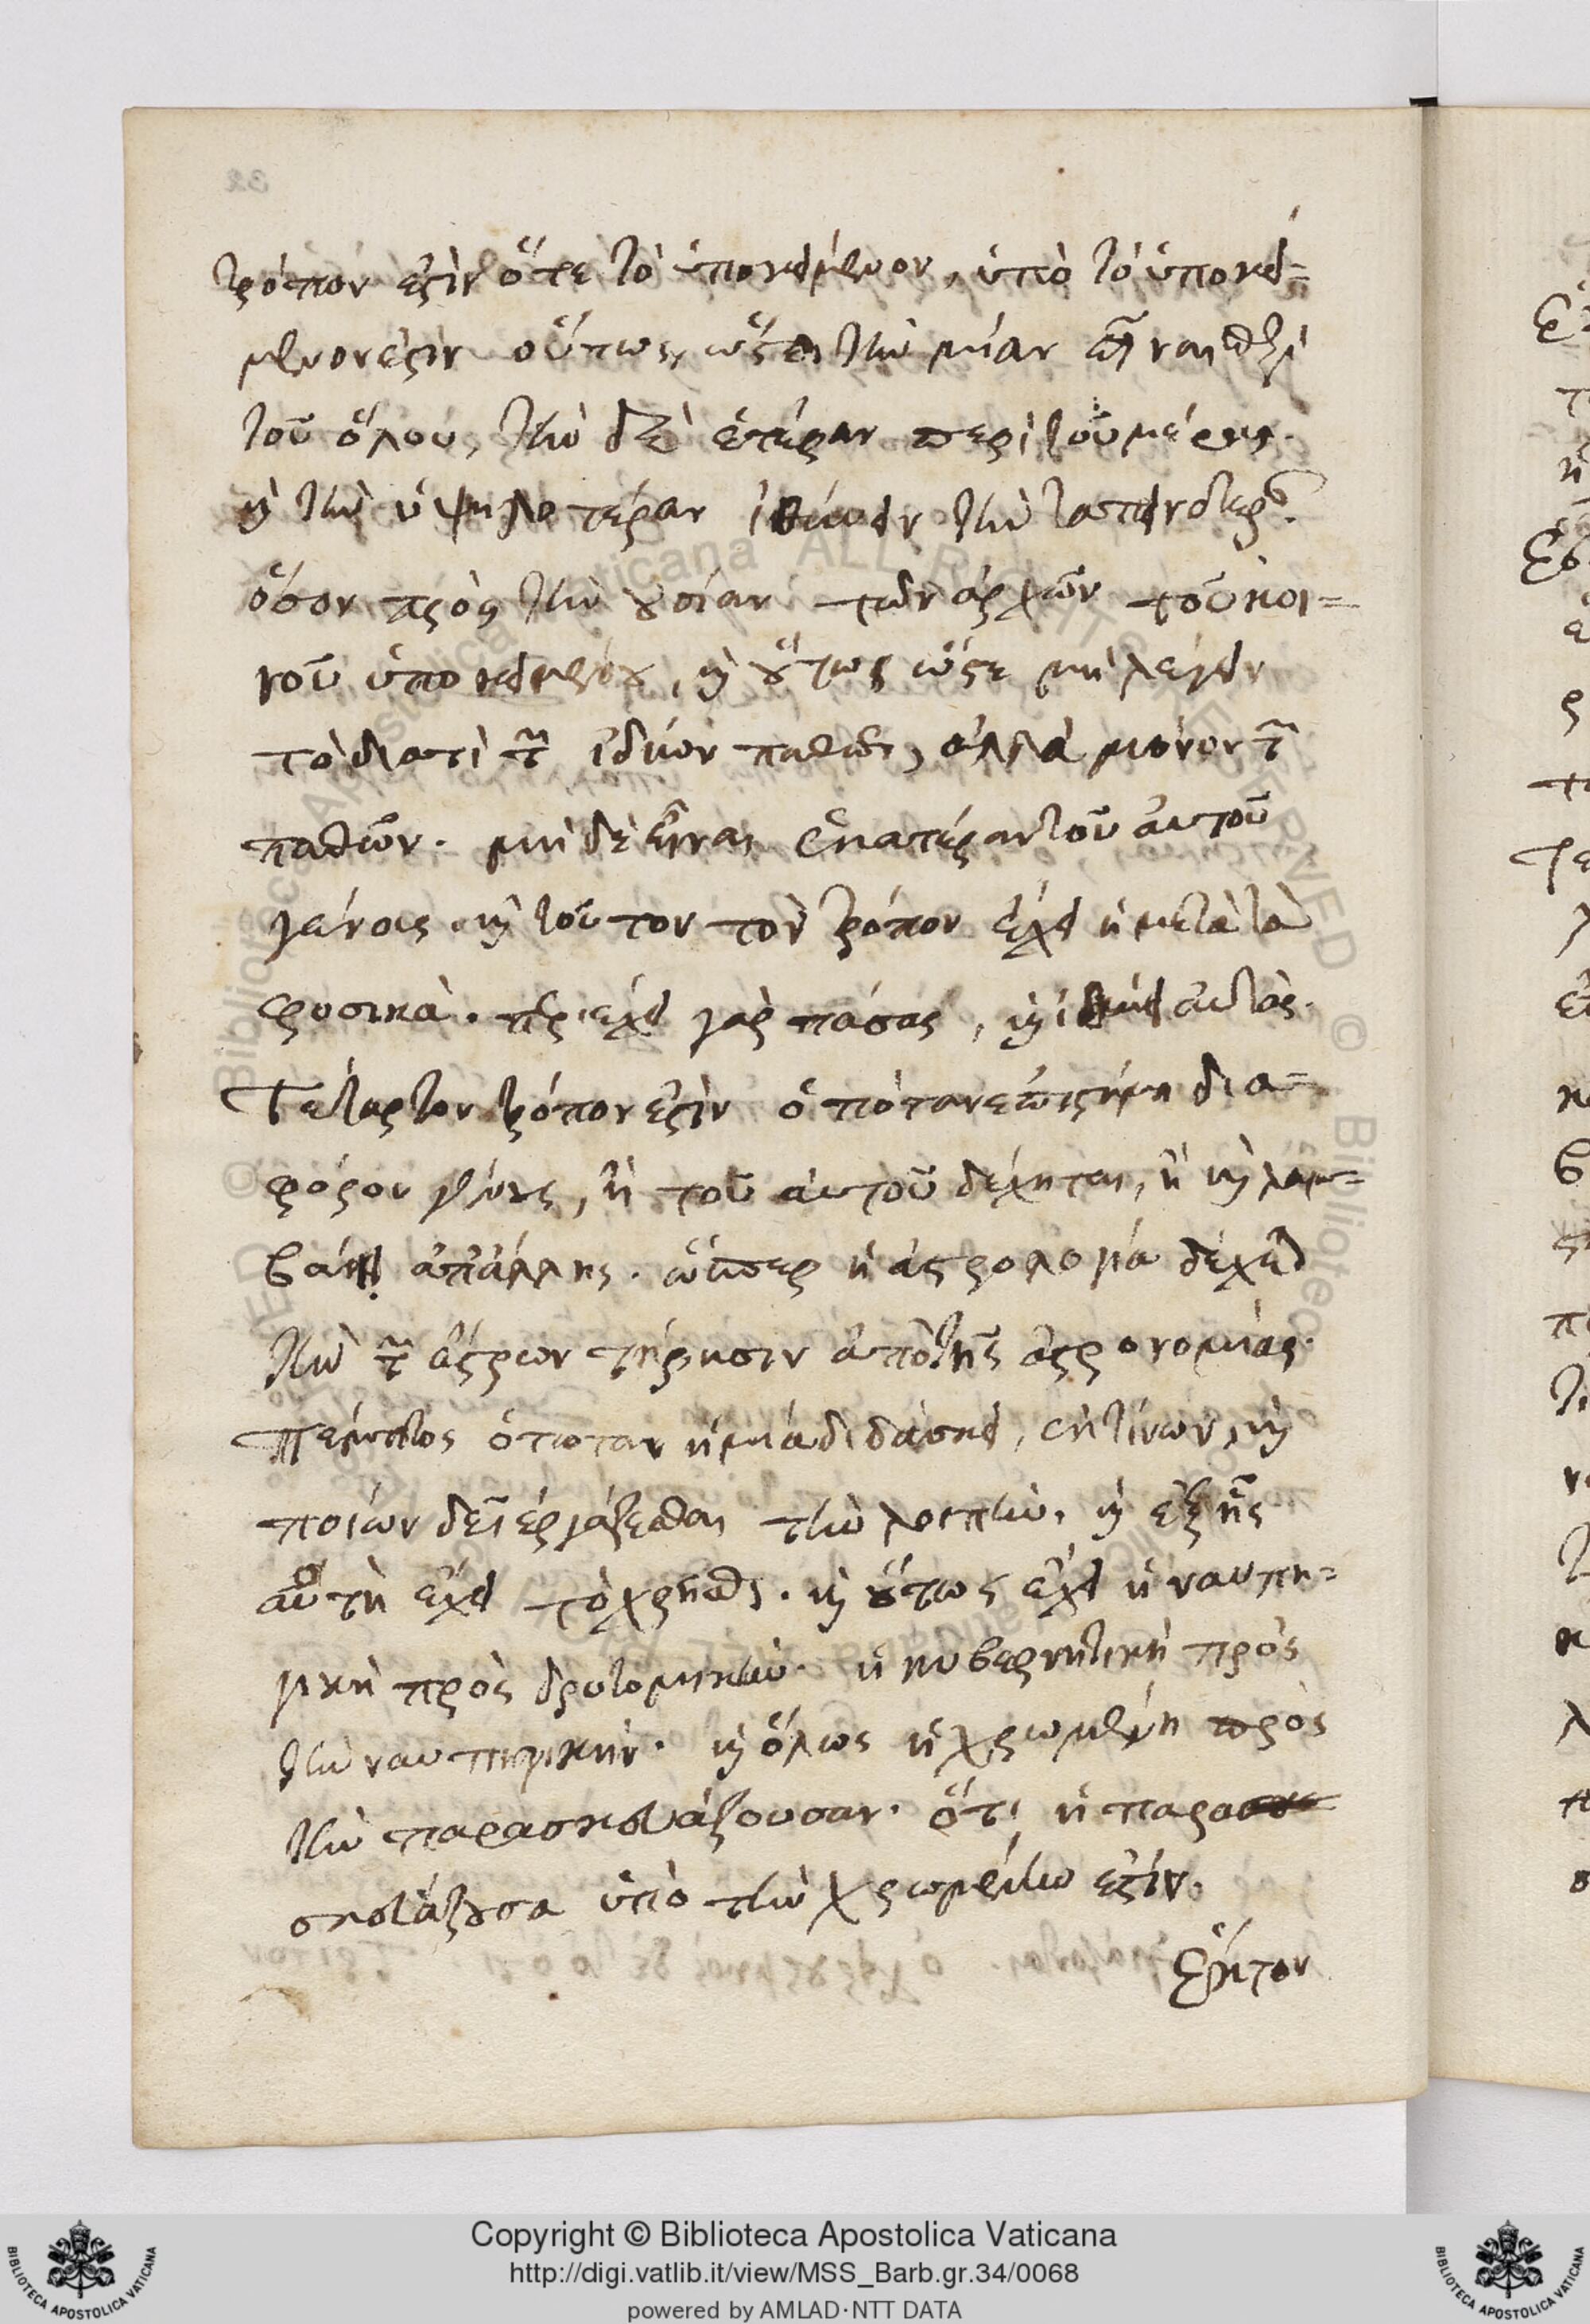 τρόπον ἐστὶν ὅτε τὸ ὑποκείμενον, ὑπὸ τὸ ὑποκεί=
μενον ἐστὶν οὕτως, ὥστε τὴν μίαν εἶναι περὶ
τοῦ ὅλου, τὴν δὲ ἑτέραν περὶ τοῦ μέρους.
καὶ τὴν ὑψηλοτέραν ἰθύνειν τὴν ταπεινοτέραν.
ὅσον πρὸς τὴν οὐσίαν τῶν ἀρχῶν τοῦ κοι=
νοῦ ὑποκειμένου, καὶ οὕτως ὥστε μὴ λέγειν
τὸ διατὶ τῶν ἰδίων παθῶν, ἀλλὰ μόνον τῶν
παθῶν. μὴ δὲ εἶναι ἑκατέραν τοῦ αὐτοῦ
γένους. καὶ τοῦτον τὸν τρόπον ἔχει ἡ μετὰ τὰ
φυσικὰ. περιέχει γὰρ πάσας, καὶ ἰθύνει αὐτὰς.
Τέταρτον τρόπον ἐστὶν ὁπόταν ἐπιστήμη δια=
φόρου γένους, ἢ τοῦ αὐτοῦ δέχηται, ἢ καὶ λαμ=
βάνῃ ἀπ' ἄλλης. ὥσπερ ἡ ἀστρολογία δέχεται
τὴν τῶν ἄστρων τήρησιν ἀπὸ τῆς ἀστρονομίας.
πέμπτος ὁπόταν ἡ μία διδάσκει, ἐκ τίνων, καὶ
ποίων δεῖ ἐργάζεσθαι τὴν λοιπὴν. καὶ ἐξ ἧς
αὐτὴ ἔχει τὸ χρῆσθαι. καὶ οὕτως ἔχει ἡ ναυπη=
γικὴ πρὸς δρυτομικὴν. ἡ κυβερνητικὴ πρὸς
τὴν ναυπηγικὴν. καὶ ὅλως ἡ χρωμένη πρὸς
τὴν παρασκευάζουσαν. ὅτι ἡ παρα
σκευάζουσα ὑπὸ τὴν χρωμένην ἐστίν.
Ἕκτον
Copyright © Biblioteca Apostolica Vaticana
http://digi.vatlib.it/view/MSS_Barb.gr.34/0068
powered by AMLAD·NTT DATA